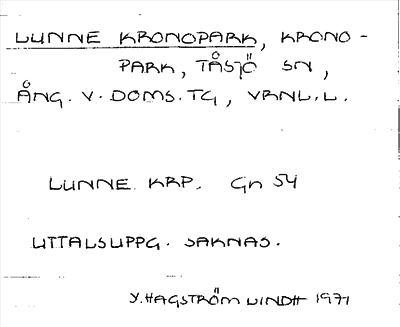 LUNNE KRONOPARK, KRONO-
PARK, TÅSJÖ SN,
ÅNG. V. DOMS.TG, VRNL.L.
LUNNE KRP. Gn 54
UTTALSUPPG. SAKNAS.
Y. HAGSTRÖM LINDH 1971